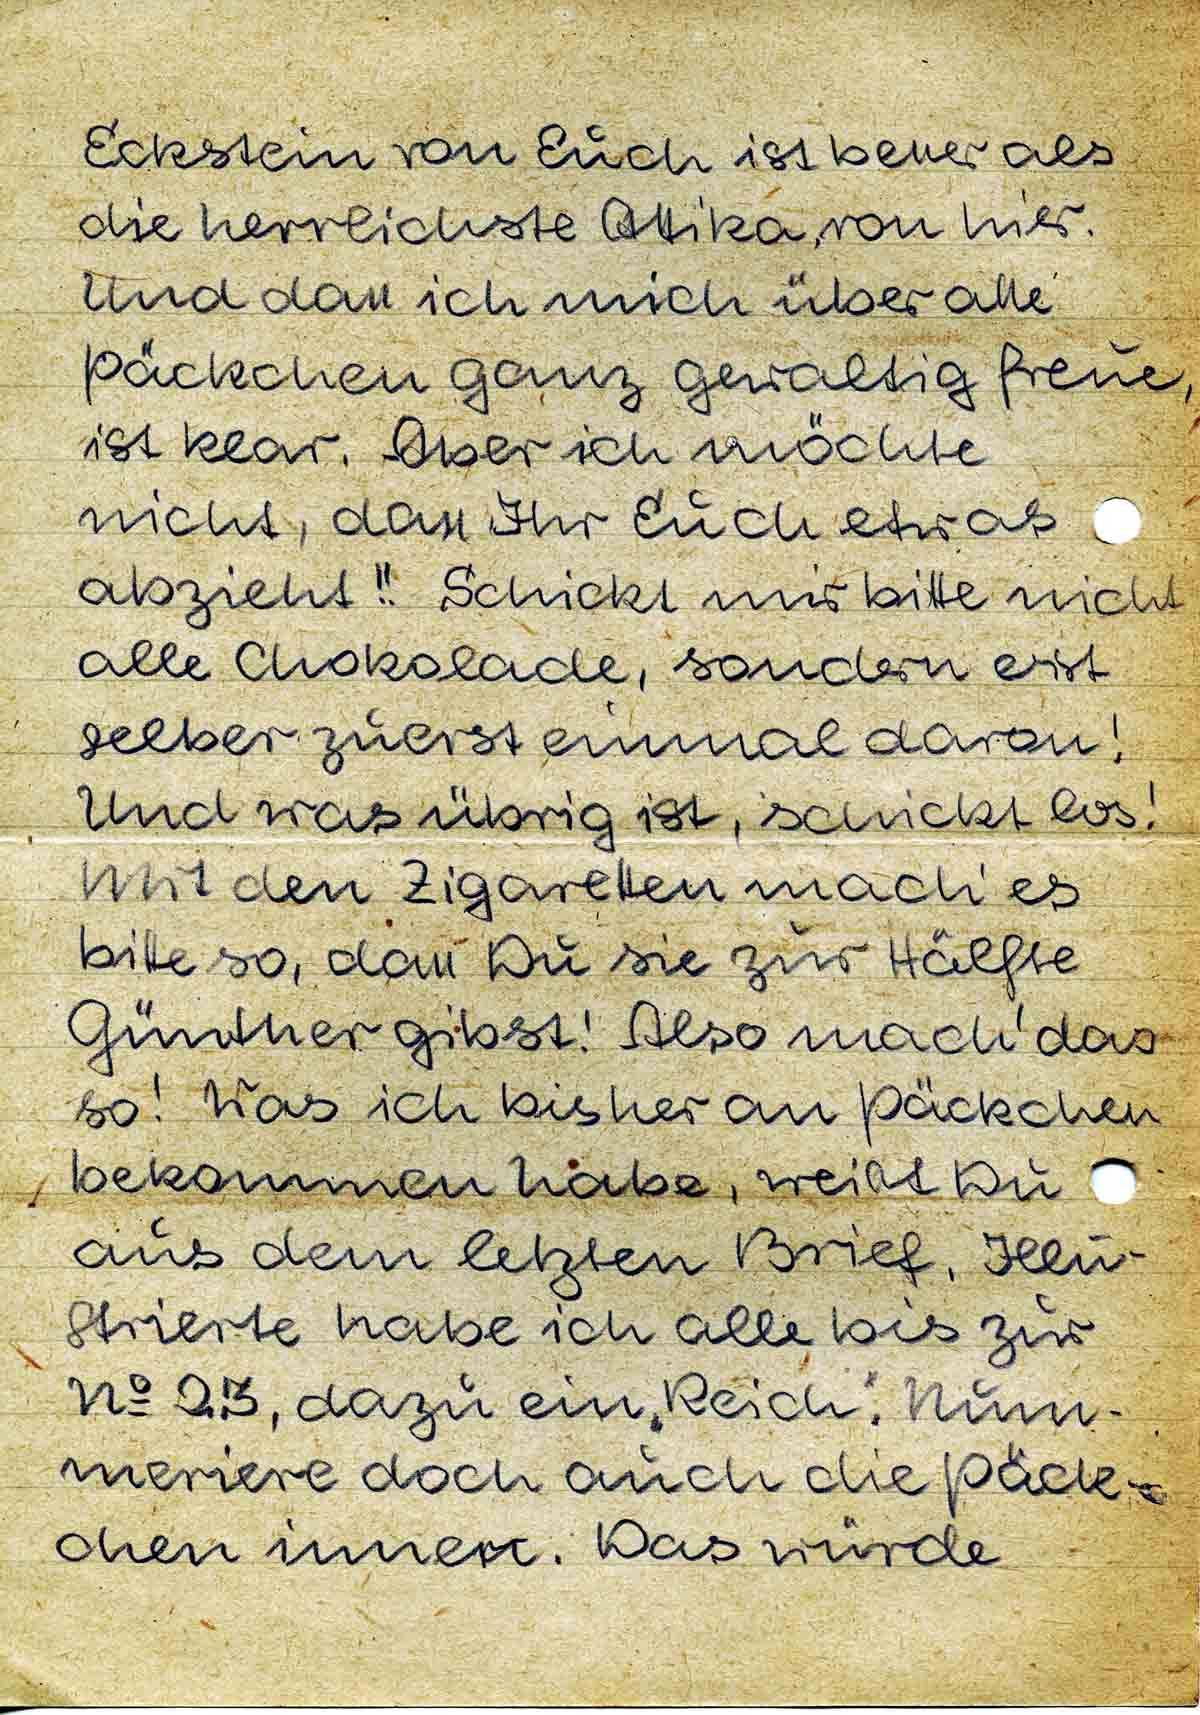 Eckstein von Euch ist besser als
die herrlichste Attika von hier.
Und dass ich mich über alle
Päckchen ganz gewaltig freue,
ist klar. Aber ich möchte
nicht, dass Ihr Euch etwas
abzieht!! Schickt mir bitte nicht
alle Chokolade, sondern erst
selber zuerst einmal daran!
Und was übrig ist, schickt los!
Mit den Zigaretten mach' es
bitte so, dass Du sie zur Hälfte
Günther gibst! Also mach' das
so! Was ich bisher an Päckchen
bekommen habe, weißt Du
aus dem letzten Brief. Illu-
strierte habe ich alle bis zur
No 23, dazu ein „Reich". Num-
meriere doch auch die Päck-
chen innen. Das würde